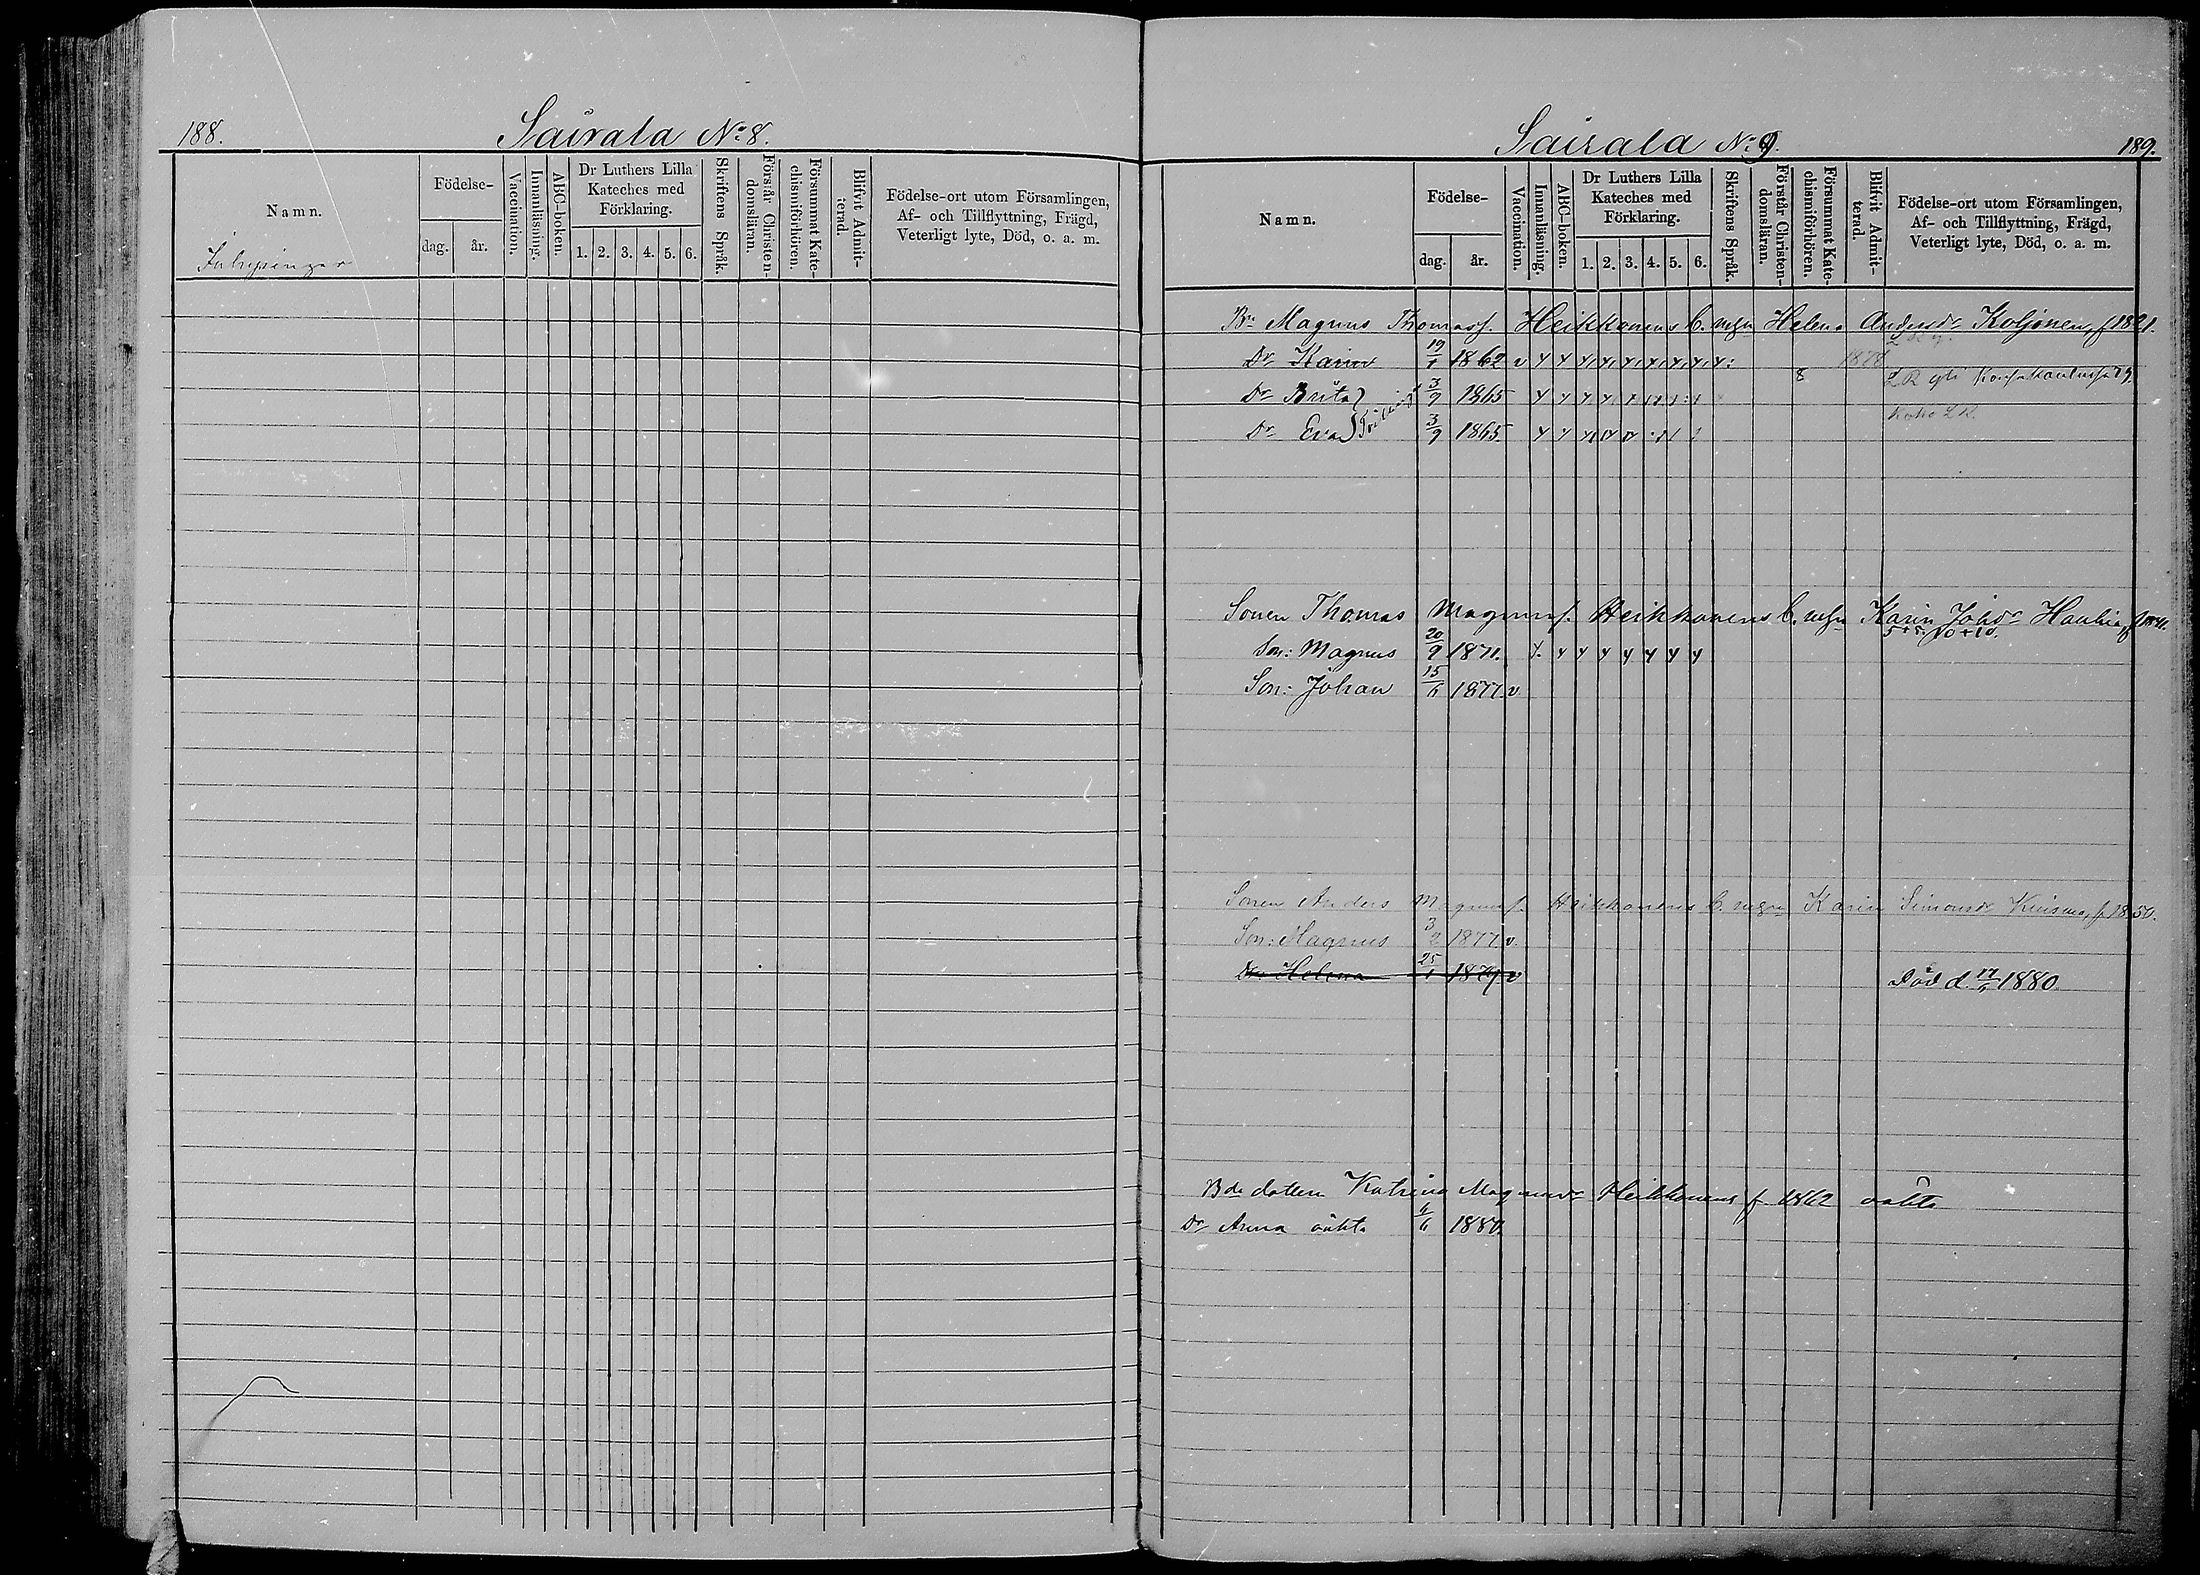 188.
Sairala No 8.
Namn.
Födelse-
dag.
år.
Vaccination.
Innanläsning.
ABC-boken.
Dr Luthers Lilla
Kateches med
Förklaring.
1. 2. 3. 4. 5. 6.
Skriftens Språk.
Förstår Christen-
domsläran.
Försummat Kate-
chismiförhören.
Blifvit Admit-
terad.
Födelse-ort utom Församlingen,
Af- och Tillflyttning, Frägd,
Veterligt lyte, Död, o. a. m.
Inhysingar
Sairala No 9.
189.
Namn.
Födelse-
dag.
år.
Vaccination.
Innanläsning.
ABC-boken.
Dr Luthers Lilla
Kateches med
Förklaring.
1. 2. 3. 4. 5. 6.
Skriftens Språk.
Förstår Christen-
domsläran.
Försummat Kate-
chismiförhören.
Blifvit Admit-
terad.
Födelse-ort utom Församlingen,
Af- och Tillflyttning, Frägd,
Veterligt lyte, Död, o. a. m.
Bn Magnus Thomasf. Heikkonens b. m. Helena Andersdr Koljonen, f 1821.
Dr Karin 19/1 1862 v 1878
Dr Brita 3/9 1865 8
Dr Eva 3/9 1865
Sonen Thomas Magnusf. Heikkonens b. m. Karin Johsdr Haukia, f
5+5. 10+10.
Son: Magnus 20/9 1871.
Son: Johan 15/6 1877. v
Sonen Anders Magnusf. Heikkonens b. m. Karin Simonsdr Kuisma, f. 1850.
Son: Magnus 3/2 1877 v.
Dr Helena 25/1 1879 v Död d. 17/6 1880.
Bde dottern Katrina Magnusdr Heikkonens f 1862 oäkta
Dr Anna oäkta 6/6 1880.